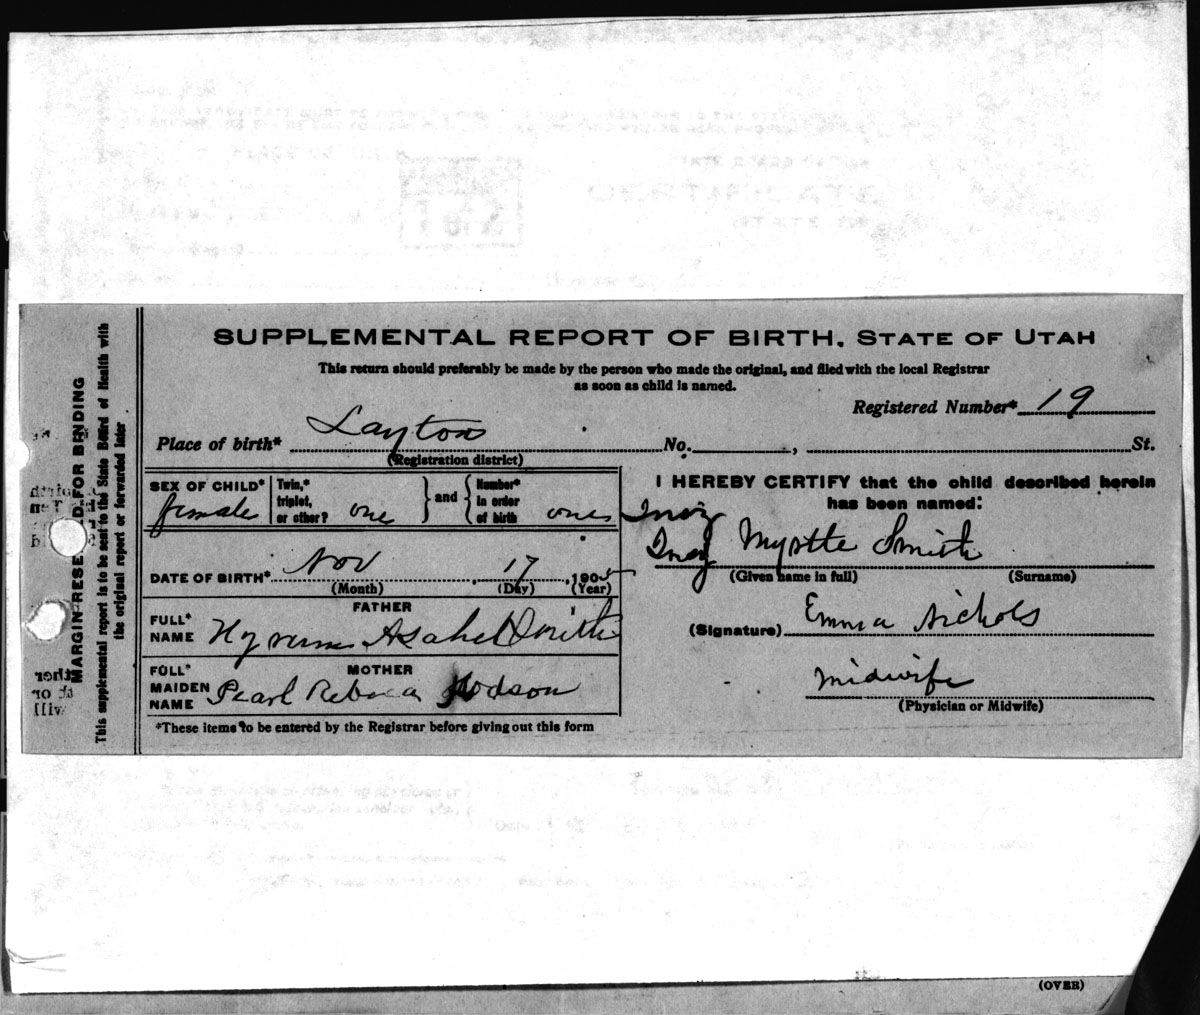 SUPPLEMENTAL REPORT OF BIRTH. STATE OF UTAH
This return should preferably be made by the person who made the original, and filed with the local Registrar
as soon as child is named.
Registered Number* 19
Place of birth* Layton No. , St.
(Registration district)
SEX OF CHILD* female
Twin,* triplet, or other? one
and
Number* in order of birth one
I HEREBY CERTIFY that the child described herein
has been named:
Inez
Inez Myrtle Smith
(Given name in full) (Surname)
DATE OF BIRTH* Nov 17, 1905
(Month) (Day) (Year)
FATHER
FULL* NAME Hyrum Asahel Smith
(Signature) Emma Nichols
MOTHER
FULL* MAIDEN NAME Pearl Rebecca Hodson
midwife
(Physician or Midwife)
*These items to be entered by the Registrar before giving out this form
MARGIN RESE D FOR BINDING
This supplemental report is to be sent to the State Board of Health with
the original report or forwarded later
(OVER)